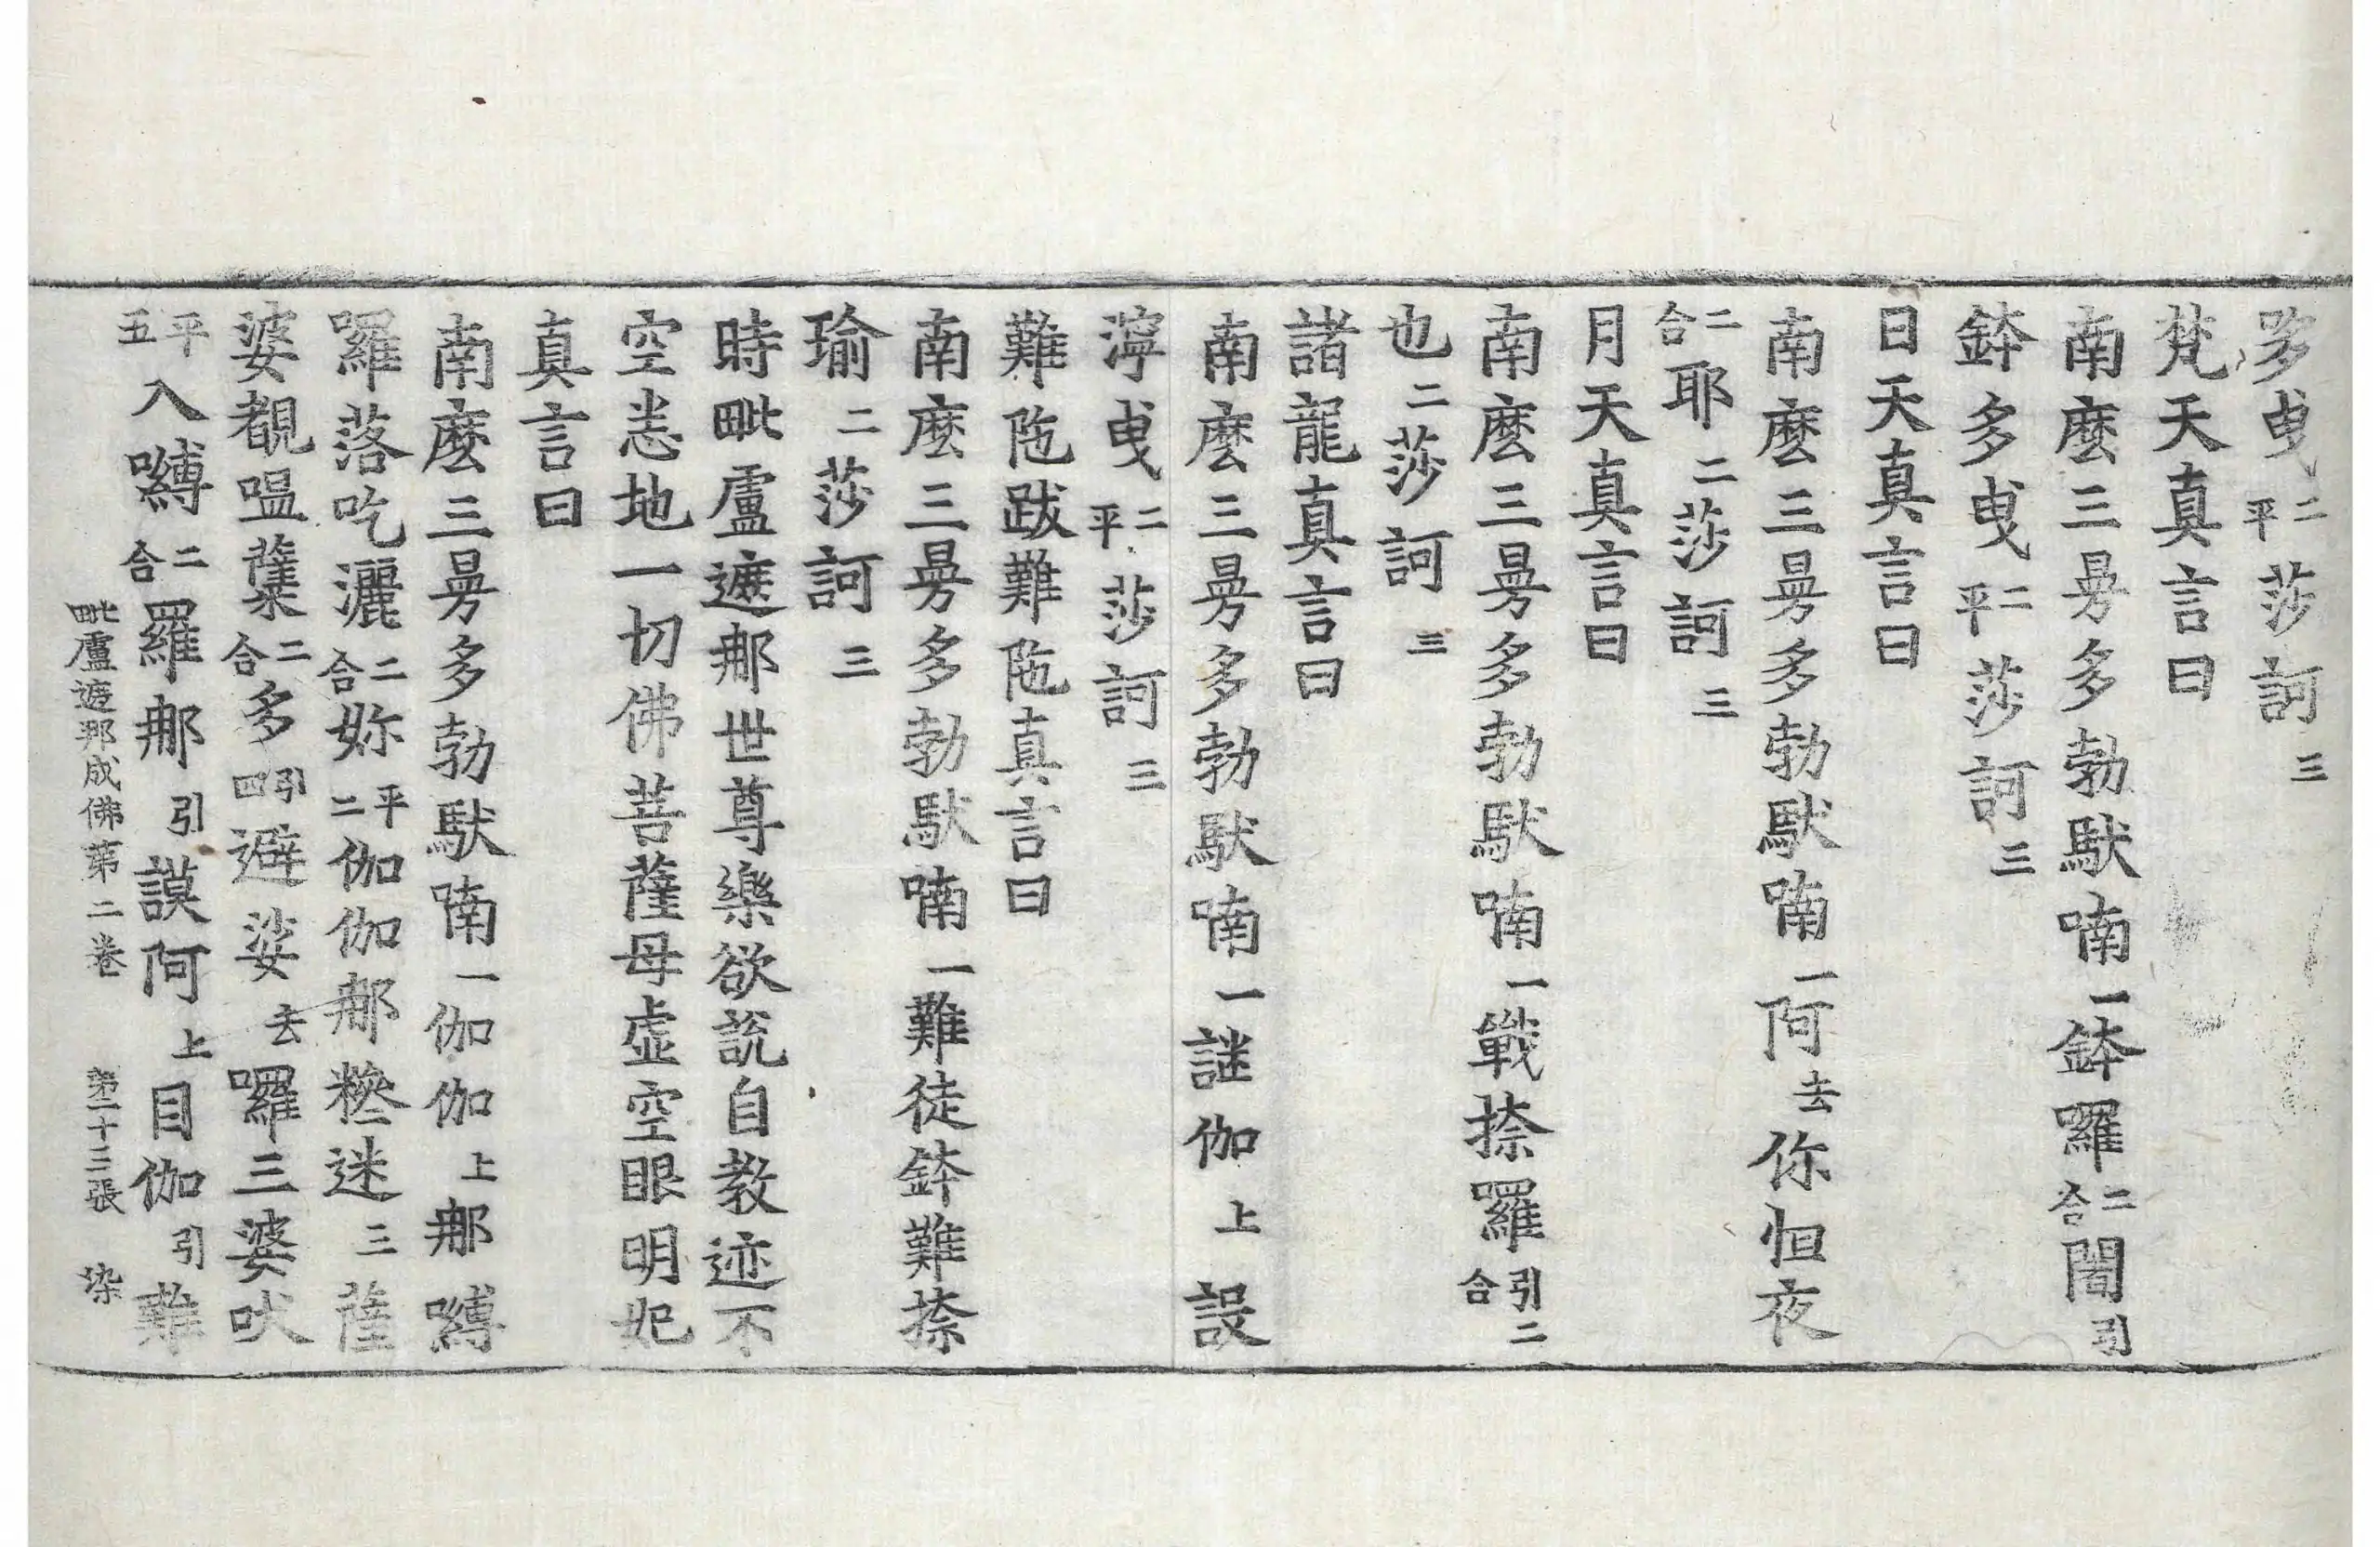 哆曳二平莎訶三
梵天真言曰
南麽三曼多勃馱喃一鉢囉二合闍引
鉢多曳二平莎訶三
日天真言曰
南麽三曼多勃馱喃一阿去你怛夜
二合耶二莎訶三
月天真言曰
南麽三曼多勃馱喃一戰捺羅引二合
也二莎訶三
諸龍真言曰
南麽三曼多勃馱喃一謎伽上設
濘曳二平莎訶三
難陁跋難陁真言曰
南麽三曼多勃馱喃一難徒鉢難捺
瑜二莎訶三
時毗盧遮那世尊樂欲說自教迹不
空悉地一切佛菩薩母虛空眼明妃
真言曰
南麽三曼多勃馱喃一伽伽上那嚩
囉落吃灑二合妳平二伽伽那糝迷三薩
婆覩嗢蘖二合多引四避娑去囉三婆吠
平五入嚩二合羅那引謨阿上目伽引難
毗盧遮那成佛第二卷 第二十三張 染